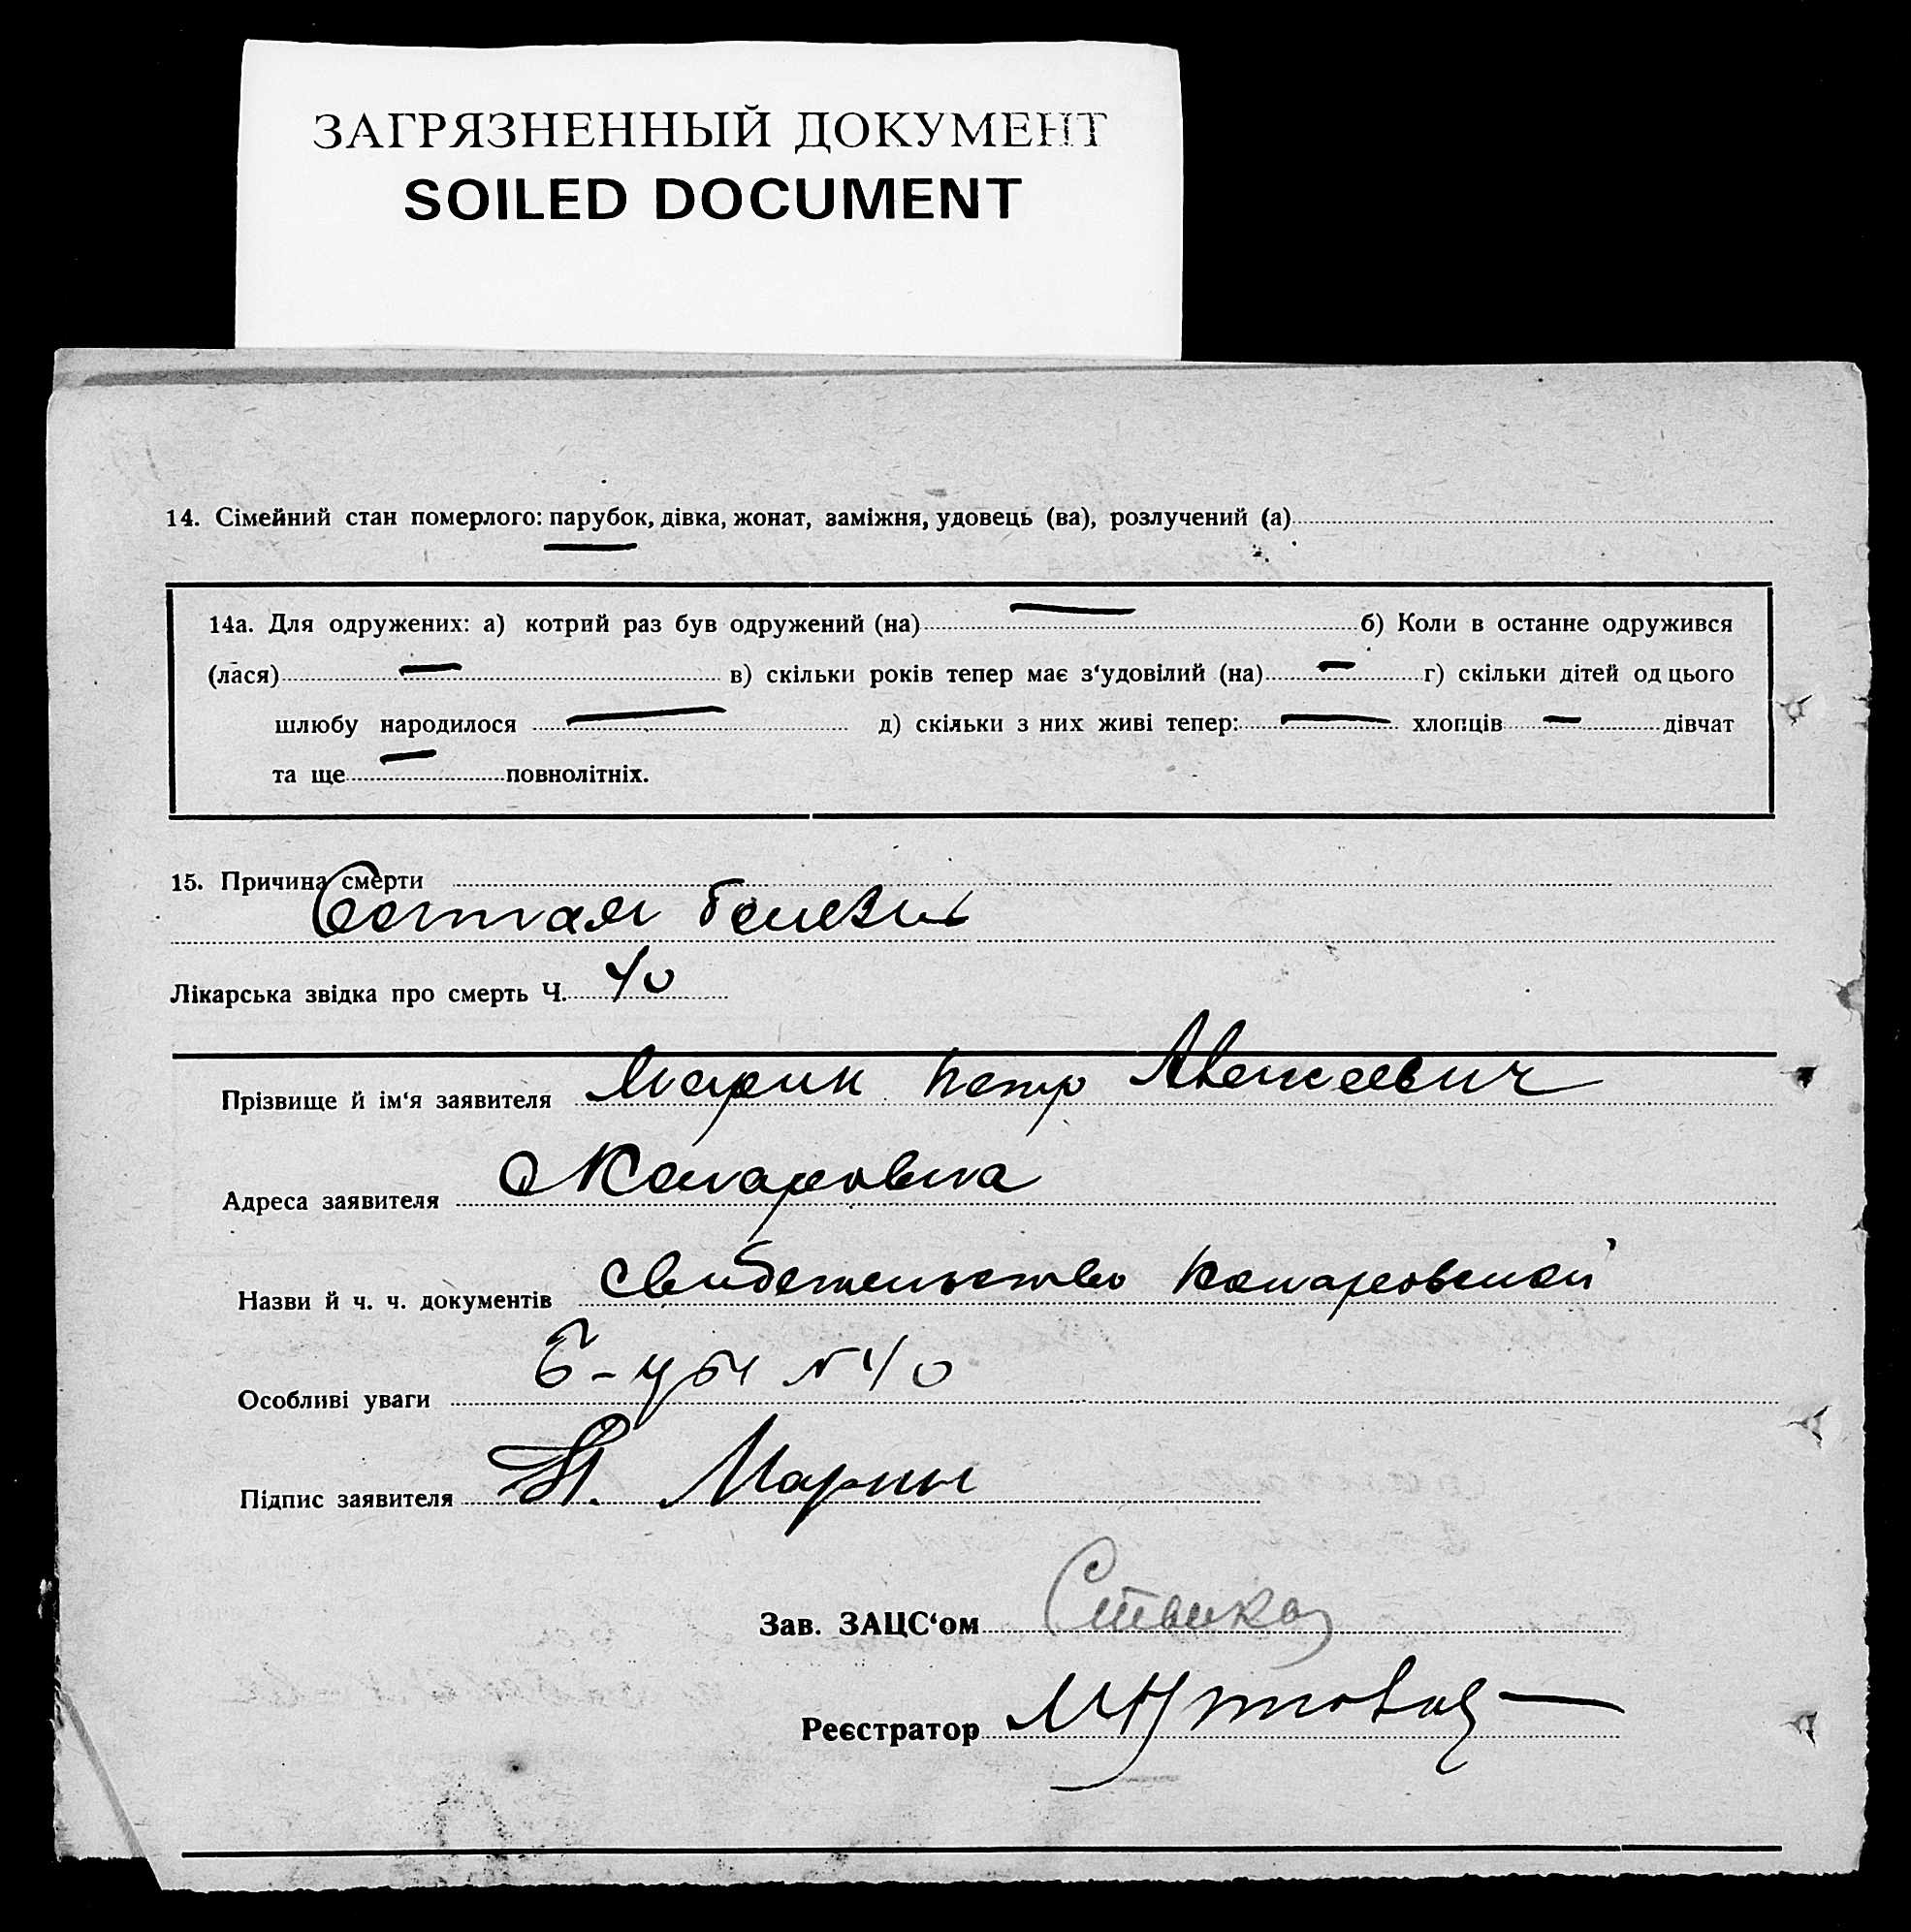 ЗАГРЯЗНЕННЫЙ ДОКУМЕНТ
SOILED DOCUMENT
14. Сімейний стан померлого: парубок, дівка, жонат, заміжня, удовець (ва), розлучений (а)
14а. Для одружених: а) котрий раз був одружений (на) — б) Коли в останне одружився
(лася) — в) скільки років тепер має з‘удовілий (на) — г) скільки дітей од цього
шлюбу народилося — д) скільки з них живі тепер: — хлопців — дівчат
та ще — повнолітніх.
15. Причина смерти
болезнь
Лікарська звідка про смерть Ч. 40
Прізвище й ім‘я заявителя Марин Петр Алексеевич
Адреса заявителя Комаровка
Назви й ч. ч. документів Свидетельство Комаровской
Особливі уваги Б-цы №40
Підпис заявителя П. Марин
Зав. ЗАЦС‘ом
Реєстратор